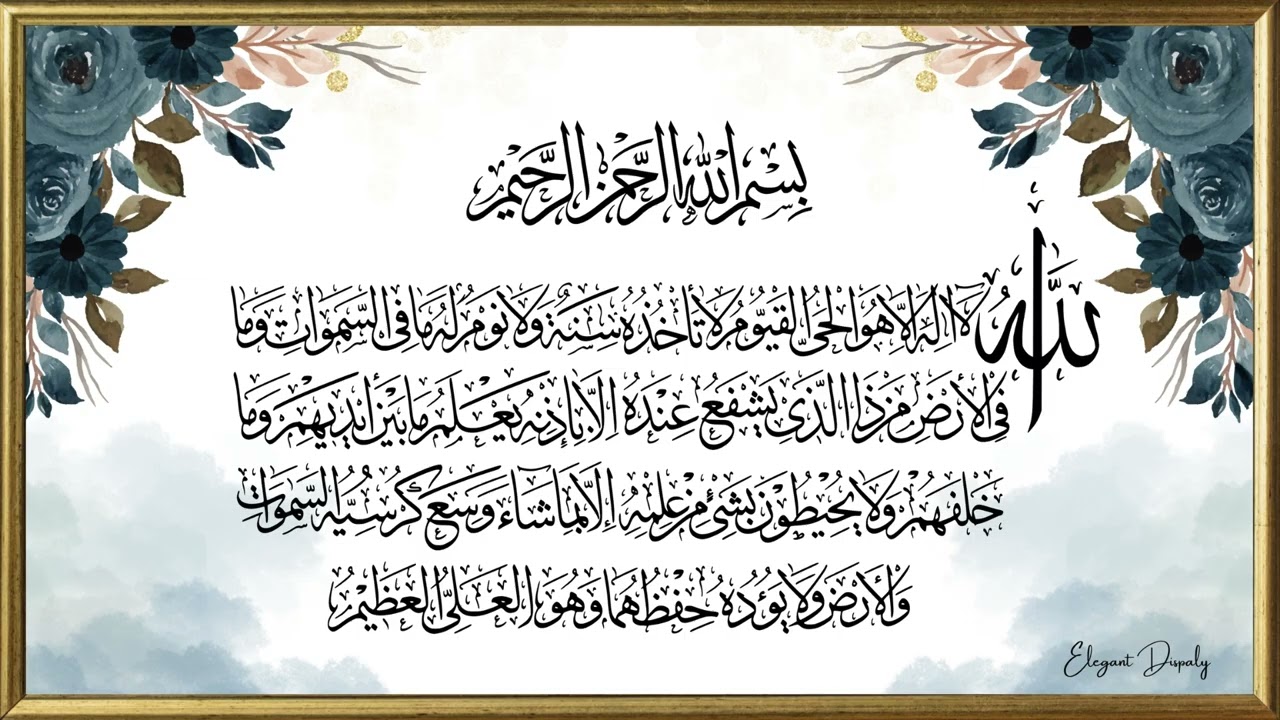 بِسْمِ اللهِ الرَّحْمٰنِ الرَّحِيْمِ
اللهُ لَآ اِلٰهَ اِلَّا هُوَ الْحَيُّ الْقَيُّوْمُ لَا تَأْخُذُهُ سِنَةٌ وَلَا نَوْمٌ لَهُ مَا فِي السَّمٰوَاتِ وَمَا
فِي الْأَرْضِ مَنْ ذَا الَّذِيْ يَشْفَعُ عِنْدَهُ اِلَّا بِإِذْنِهِ يَعْلَمُ مَا بَيْنَ اَيْدِيْهِمْ وَمَا
خَلْفَهُمْ وَلَا يُحِيْطُوْنَ بِشَيْءٍ مِنْ عِلْمِهِ اِلَّا بِمَا شَآءَ وَسِعَ كُرْسِيُّهُ السَّمٰوَاتِ
وَالْأَرْضَ وَلَا يَؤُدُهُ حِفْظُهُمَا وَهُوَ الْعَلِيُّ الْعَظِيْمُ
Elegant Dispaly